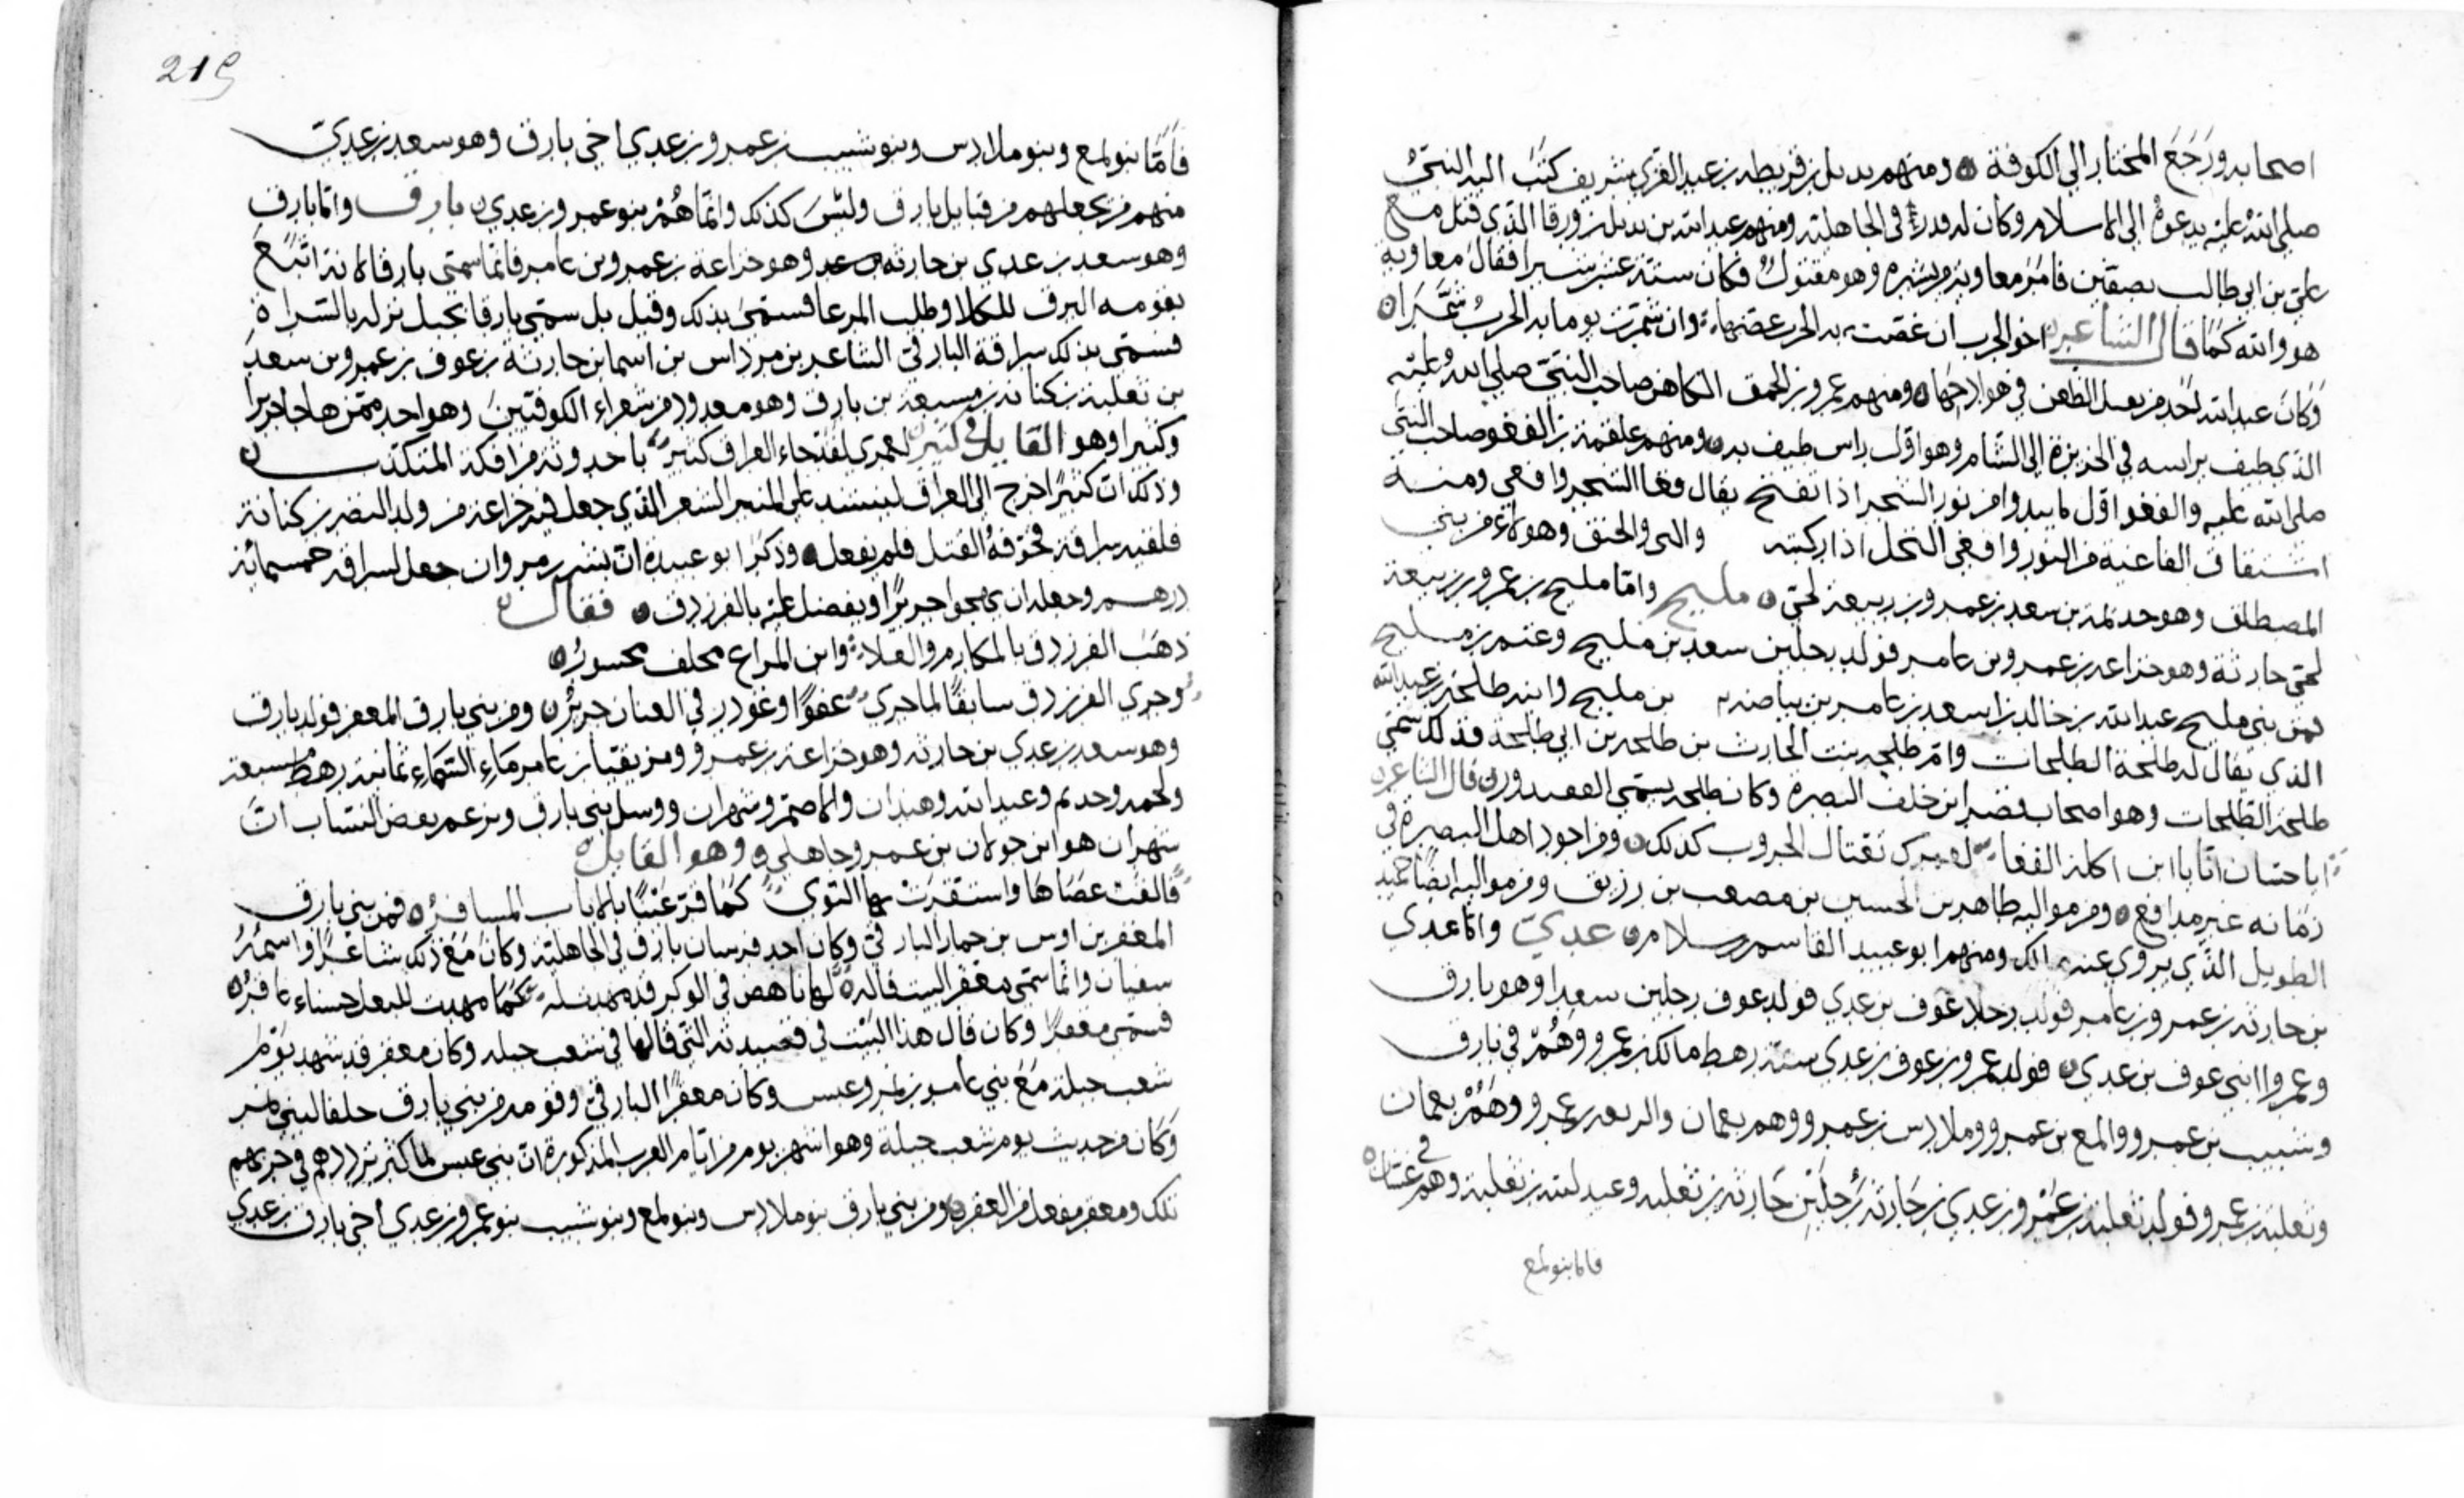 اصحابه ورَجَعَ المختار الى الكوفة ومنهم بديل بن عبد العزي شريف كتَبَ اليه النبيُّ
صلى اللهُ عليه يدعوهُ الى الاسلام وكان له قدرٌ في الجاهلية ومنهم عبدالله بن بديل بن ورقا الذي قتل مع
علي بن ابي طالب بصفّين فامَرَ معاوية وهو مقتولٌ فكان ستة عشر شبرا فقال معاوية
هو والله كمَا قال الشاعر اخو الحرب ان عضّت به الحرب عضّها وان شمّرت يوما به الحربُ شمَّرَا
وكان عبدالله احد في هوادجها ومنهم عمرو بن الحمق الكاهن صاحب النبيّ صلى اللهُ عليه
الذي طيف براسه في الجزيرة الى الشام وهو اوّل راس طيف به ومنهم علقمة بن الفغو صاحب النبي
صلى الله عليه والفغو اوّل ما يبدوا من نور الشجر اذا تفتح يقال فغا الشجر وافغي ومنه
اشتقاق الفاغية من النور وافغي النخل اذا والحنق وهولاء من بني
المصطلق وهو جذيمة بن سعد بن عمرو بن ربيعة بن لحيّ مليح وامّا مليح بن عمرو بن ربيعة
لحيّ حارثة وهو خزاعة بن عمرو بن عامر فولد رجلين سعد بن مليح وغنم بن مليح
فمن بني مليح عبدالله بن خالد بن اسعد بن عامر بن بياضة بن مليح وابنه طلحة بن عبدالله
الذي يقال له طلحة الطلحات وامّ طلحة بنت الحارث بن طلحة بن ابي طلحة فذلك سمّي
طلحة الطلحات وهو اصحاب قصر ابن خلف البصرة وكان طلحة يسمّى قال الشاعر
اباحسان انّا يا ابن اكلة الفغا لعمرك نغتال الحروب كذلك ومن اجود اهل البصرة في
زمانه غير مدافع ومن مواليه طاهر بن الحسين بن مصعب بن رزيق ومن مواليه ايضًا حميد
الطويل الذي يروي عنه مالك ومنهم ابو عبيد القاسم بن سلام عديّ وامّا عدي
بن حارثة بن عمرو بن عامر فولد رجلا عوف بن عدي فولد عوف رجلين سعدا وهو بارق
وعمروا ابني عوف بن عدي فولد عمرو بن عوف بن عدي ستة رهط مالك بن عمرو وهُمْ في بارق
وشبيب بن عمرو والمع بن عمرو وملادس بن عمرو وهم بعمان والربعة بن عمرو وهُمْ بعمان
وثعلبة بن عمرو فولد ثعلبة بن عَمْرو بن عدي بن حَارثة رُجلَيْن حَارثة بن ثعلبه وعبدالله بن ثعلبة وهم في غسّان
فاما بنو لمع
219
فَامّا بنو لمع وبنو ملادس وبنو شبيب بن عمرو بن عدي اخي بارق وهو سعد بن عديّ
منهم من يجعلهم من قبايل بارق وليْسَ كذلك وانّما هُمْ بنو عمرو بن عدي بارق وامّا بارق
وهو سعد بن عدي بن حارثة وهو خزاعة بن عمرو بن عامر فانّما سمّي بارقا لانه اتبَعَ
بقومه البرق للكلا وطلب المرعا فسمّى بذلك وقيل بل سمّي بارقا بجبل نزله بالسّراة
فسمّي بذلك سراقة البارقيّ الشاعر بن مرداس بن اسما بن حارثة بن عوف بن عمرو بن سعد
بن ثعلبة بن كنانة بن بارق وهو معدود من شعراء الكوفيّين وهو احد ممّن هاجا جريرا
وكثيرا وهو القايل في كثير لعمري لقد جاء العراق كثيرٌ باحدوثة من افكه المتكذب
وذلك انّ كثيرًا خرج الى العراق لينشد على المنبر الشعر الذي جعل فيه خزاعة من ولد النضر بن كنانة
فلقيه سراقة فخوّفهُ القتل فلم يفعل وذكر ابو عبيدة انّ بشر بن مروان جعل لسراقه خمسمائة
درهم وجعله ان يهجوا جريرًا ويفضل عليه بالفرزدق فقال
ذهَبَ الفرزدق بالمكارم والعلا وابن المراغ مخلف محسورُ
وجري الفرزدق سابقًا لما جري عفوًا وغودر في العنان جريرُ ومن بني بارق المعقر فولد بارق
وهو سعد بن عدي بن حارثة وهو خزاعة بن عمرو ومزيقيا بن عامر مَاءِ السّمَاءِ ثمانية رهط
ولحمه وحديم وعبدالله وهندان والاصمّ وشهران بني بارق وزعم بعض النساب انّ
شهران هو ابن خولان بن عمرو جاهلي وهو القايل
فَالقَتْ عصَاهَا واستقرتْ بها النّوى كمَا قرّ عَيْنًا بالاياب المسافرُ فمن بني بارق
المعقر بن اوس بن حمار البارقيّ وكان احد فرسان بارق في الجاهلية وكان مَعَ ذلك شاعرًا واسمُهُ
سفيان وانّما سمّي معقر البيت قاله لها ناهض في الوكر قد مهدت له كمَا مهدت للبعل حسناء عاقرُ
فسمّي معقرًا وكان قال هذا البَيْت في قصيدته التّي قالها في شعب جبله وكان معقر قد شهد يوْم
شعب جبلة مَعَ بني عامر بن وعبس وكان معقرًا البارقيّ وقومه من بني بارق حلفا لبني
وكان من حديث يوم شعب جبلة وهو اشهر يوم من ايّام العرب المذكورة انّ بني عبس لمّا كثير في حربهم
تلك ومعقر مفعل من العقر ومن بني بارق بنو ملادس وبنو لمع وبنو شبيب بنو عمرو بن عدي اخي بارق بن عدي